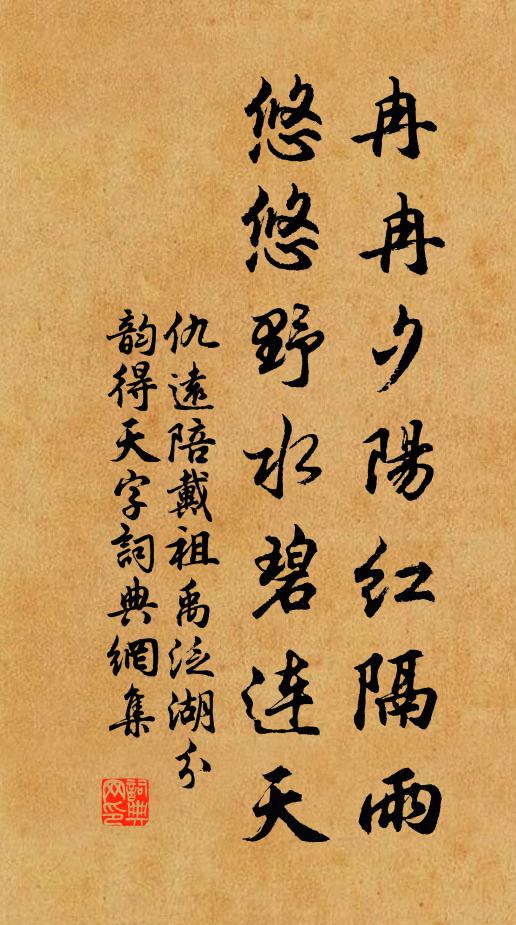 冉冉夕陽红隔雨
悠悠野水碧連天
仇遠陪戴祖禹泛湖分
韵得天字詞典網集
詞典網印